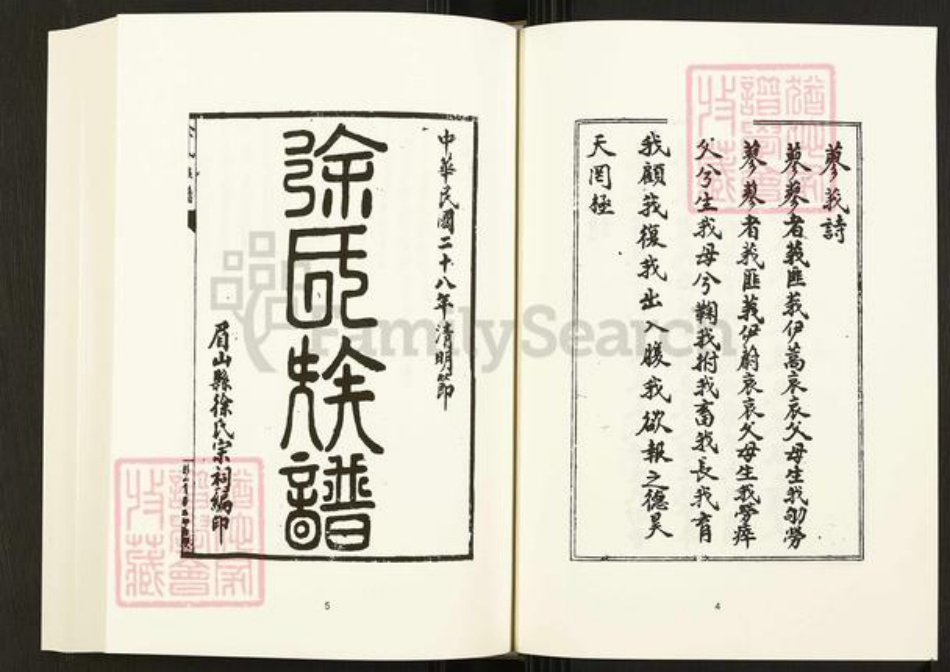 蓼莪詩
蓼蓼者莪匪莪伊蒿哀哀父母生我劬勞
蓼蓼者莪匪莪伊蔚哀哀父母生我勞瘁
父兮生我母兮鞠我拊我畜我長我育
我顧我復我出入腹我欲報之德昊
天罔極
4
中華民國二十八年清明節
徐氏族譜
眉山縣徐氏宗祠編印
5
FamilySearch
譜學會
收藏